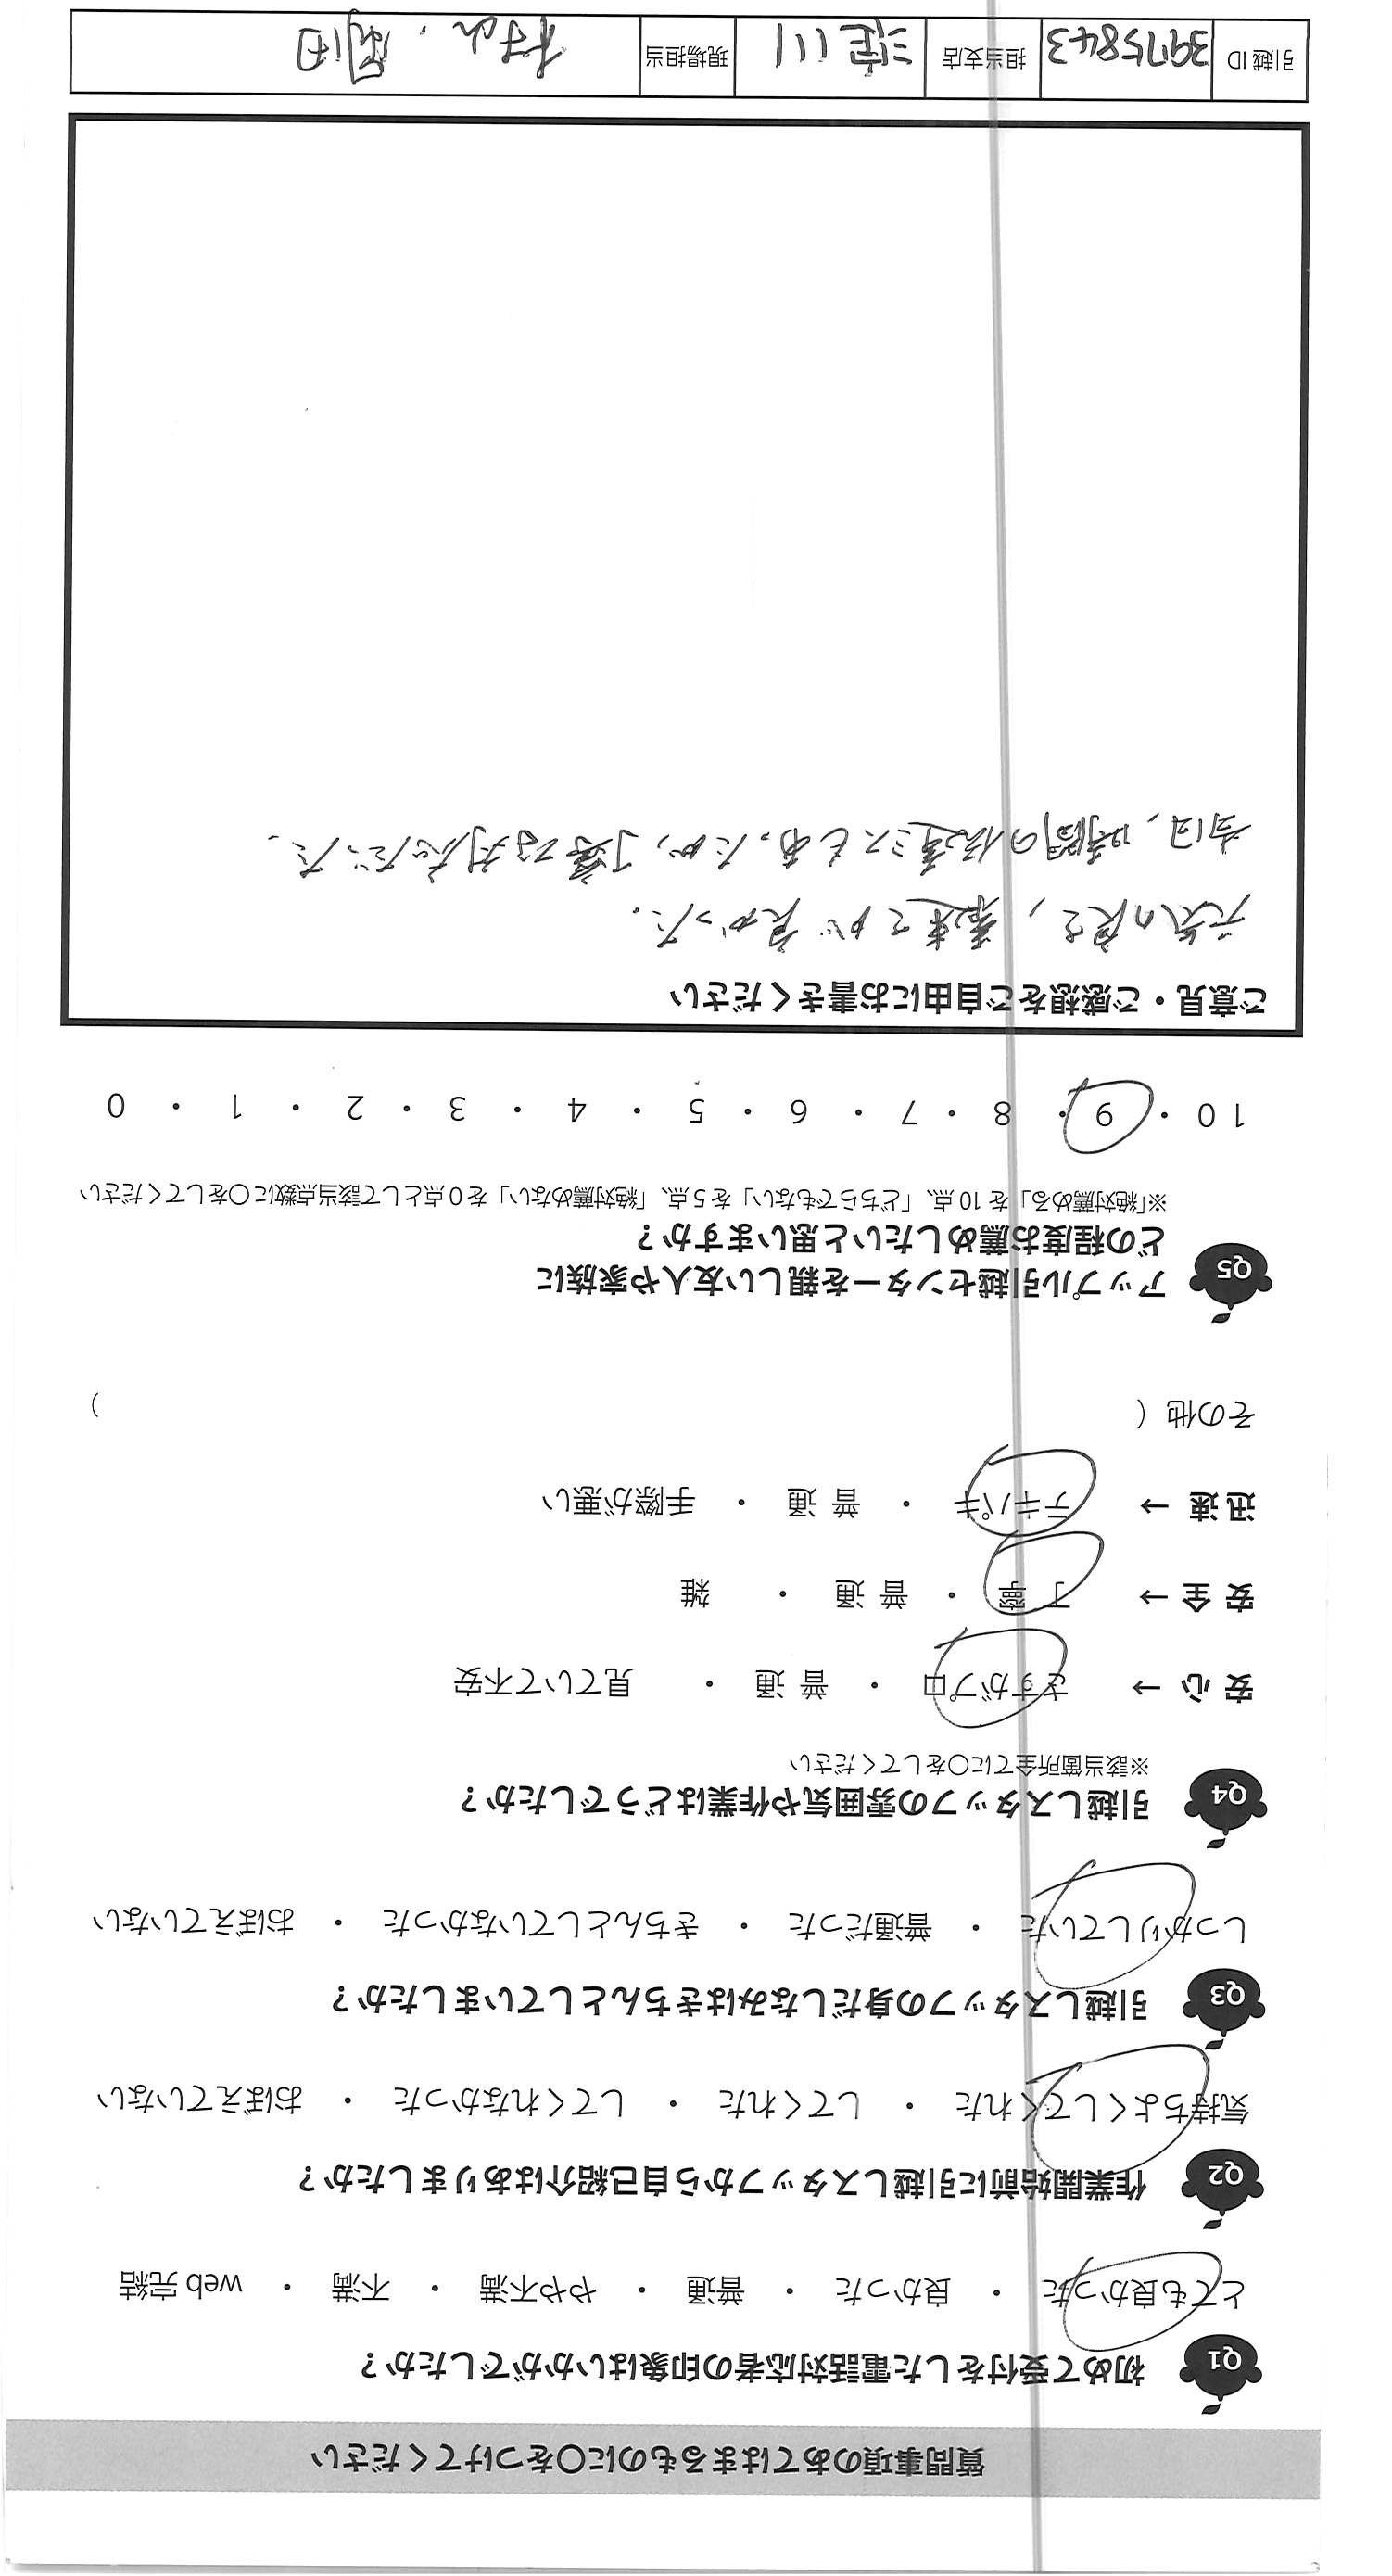 質問事項のあてはまるものに○をつけてください
Q1 初めて受付をした電話対応者の印象はいかがでしたか？
とても良かった ・ 良かった ・ 普通 ・ やや不満 ・ 不満 ・ web 完結
Q2 作業開始前に引越しスタッフから自己紹介はありましたか？
気持ちよくしてくれた ・ してくれた ・ してくれなかった ・ おぼえていない
Q3 引越しスタッフの身だしなみはきちんとしていましたか？
しっかりしていた ・ 普通だった ・ きちんとしていなかった ・ おぼえていない
Q4 引越しスタッフの雰囲気や作業はどうでしたか？
※該当箇所全てに○をしてください
安 心 → さすがプロ ・ 普 通 ・ 見ていて不安
安 全 → 丁 寧 ・ 普 通 ・ 雑
迅 速 → テキパキ ・ 普 通 ・ 手際が悪い
その他（ ）
Q5 アップル引越センターを親しい友人や家族に
どの程度お薦めしたいと思いますか？
※「絶対薦める」を 10 点、「どちらでもない」を 5 点、「絶対薦めない」を 0 点として該当点数に○をしてください
10 ・ 9 ・ 8 ・ 7 ・ 6 ・ 5 ・ 4 ・ 3 ・ 2 ・ 1 ・ 0
ご意見・ご感想をご自由にお書きください
元気の良さ, 素速さが良かった.
当日, 時間の伝達ミスとあったが, 丁寧な対応だった.
引越 ID 3975843 担当支店 淀川 現場担当 村山.